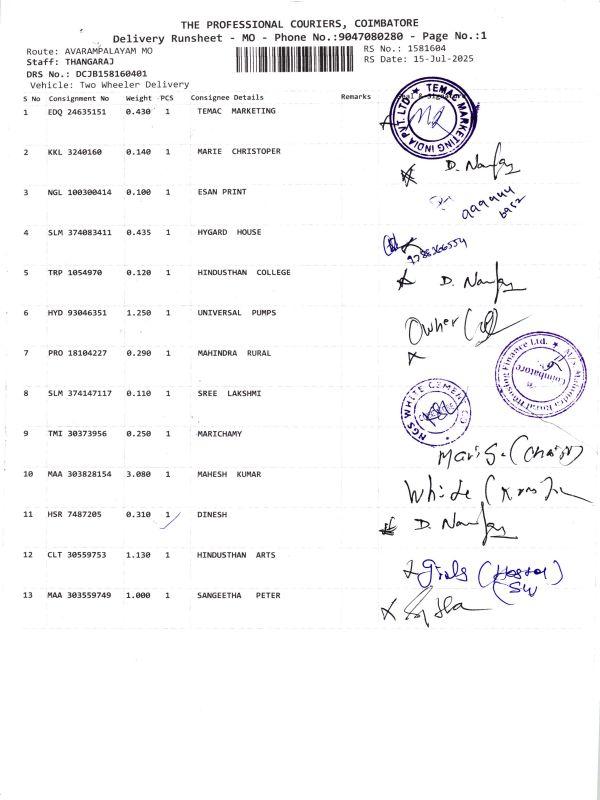 THE PROFESSIONAL COURIERS, COIMBATORE
Delivery Runsheet - MO - Phone No.:9047080280 - Page No.:1
Route: AVARAMPALAYAM MO
RS No.: 1581604
Staff: THANGARAJ
RS Date: 15-Jul-2025
DRS No.: DCJB158160401
Vehicle: Two Wheeler Delivery
S No Consignment No Weight PCS Consignee Details Remarks
1 EDQ 24635151 0.430 1 TEMAC MARKETING
TEMAC MARKETING INDIA PVT. LTD.
2 KKL 3240160 0.140 1 MARIE CHRISTOPER
3 NGL 100300414 0.100 1 ESAN PRINT
999944
6952
4 SLM 374083411 0.435 1 HYGARD HOUSE
5 TRP 1054970 0.120 1 HINDUSTHAN COLLEGE
6 HYD 93046351 1.250 1 UNIVERSAL PUMPS
Owner
7 PRO 18104227 0.290 1 MAHINDRA RURAL
M/s. Mahindra Rural Housing Finance Ltd.
Coimbatore
8 SLM 374147117 0.110 1 SREE LAKSHMI
NGS WHITE CEMENT CO
9 TMI 30373956 0.250 1 MARICHAMY
10 MAA 303828154 3.080 1 MAHESH KUMAR
White
11 HSR 7487205 0.310 1 DINESH
12 CLT 30559753 1.130 1 HINDUSTHAN ARTS
Girls (Hostel)
13 MAA 303559749 1.000 1 SANGEETHA PETER